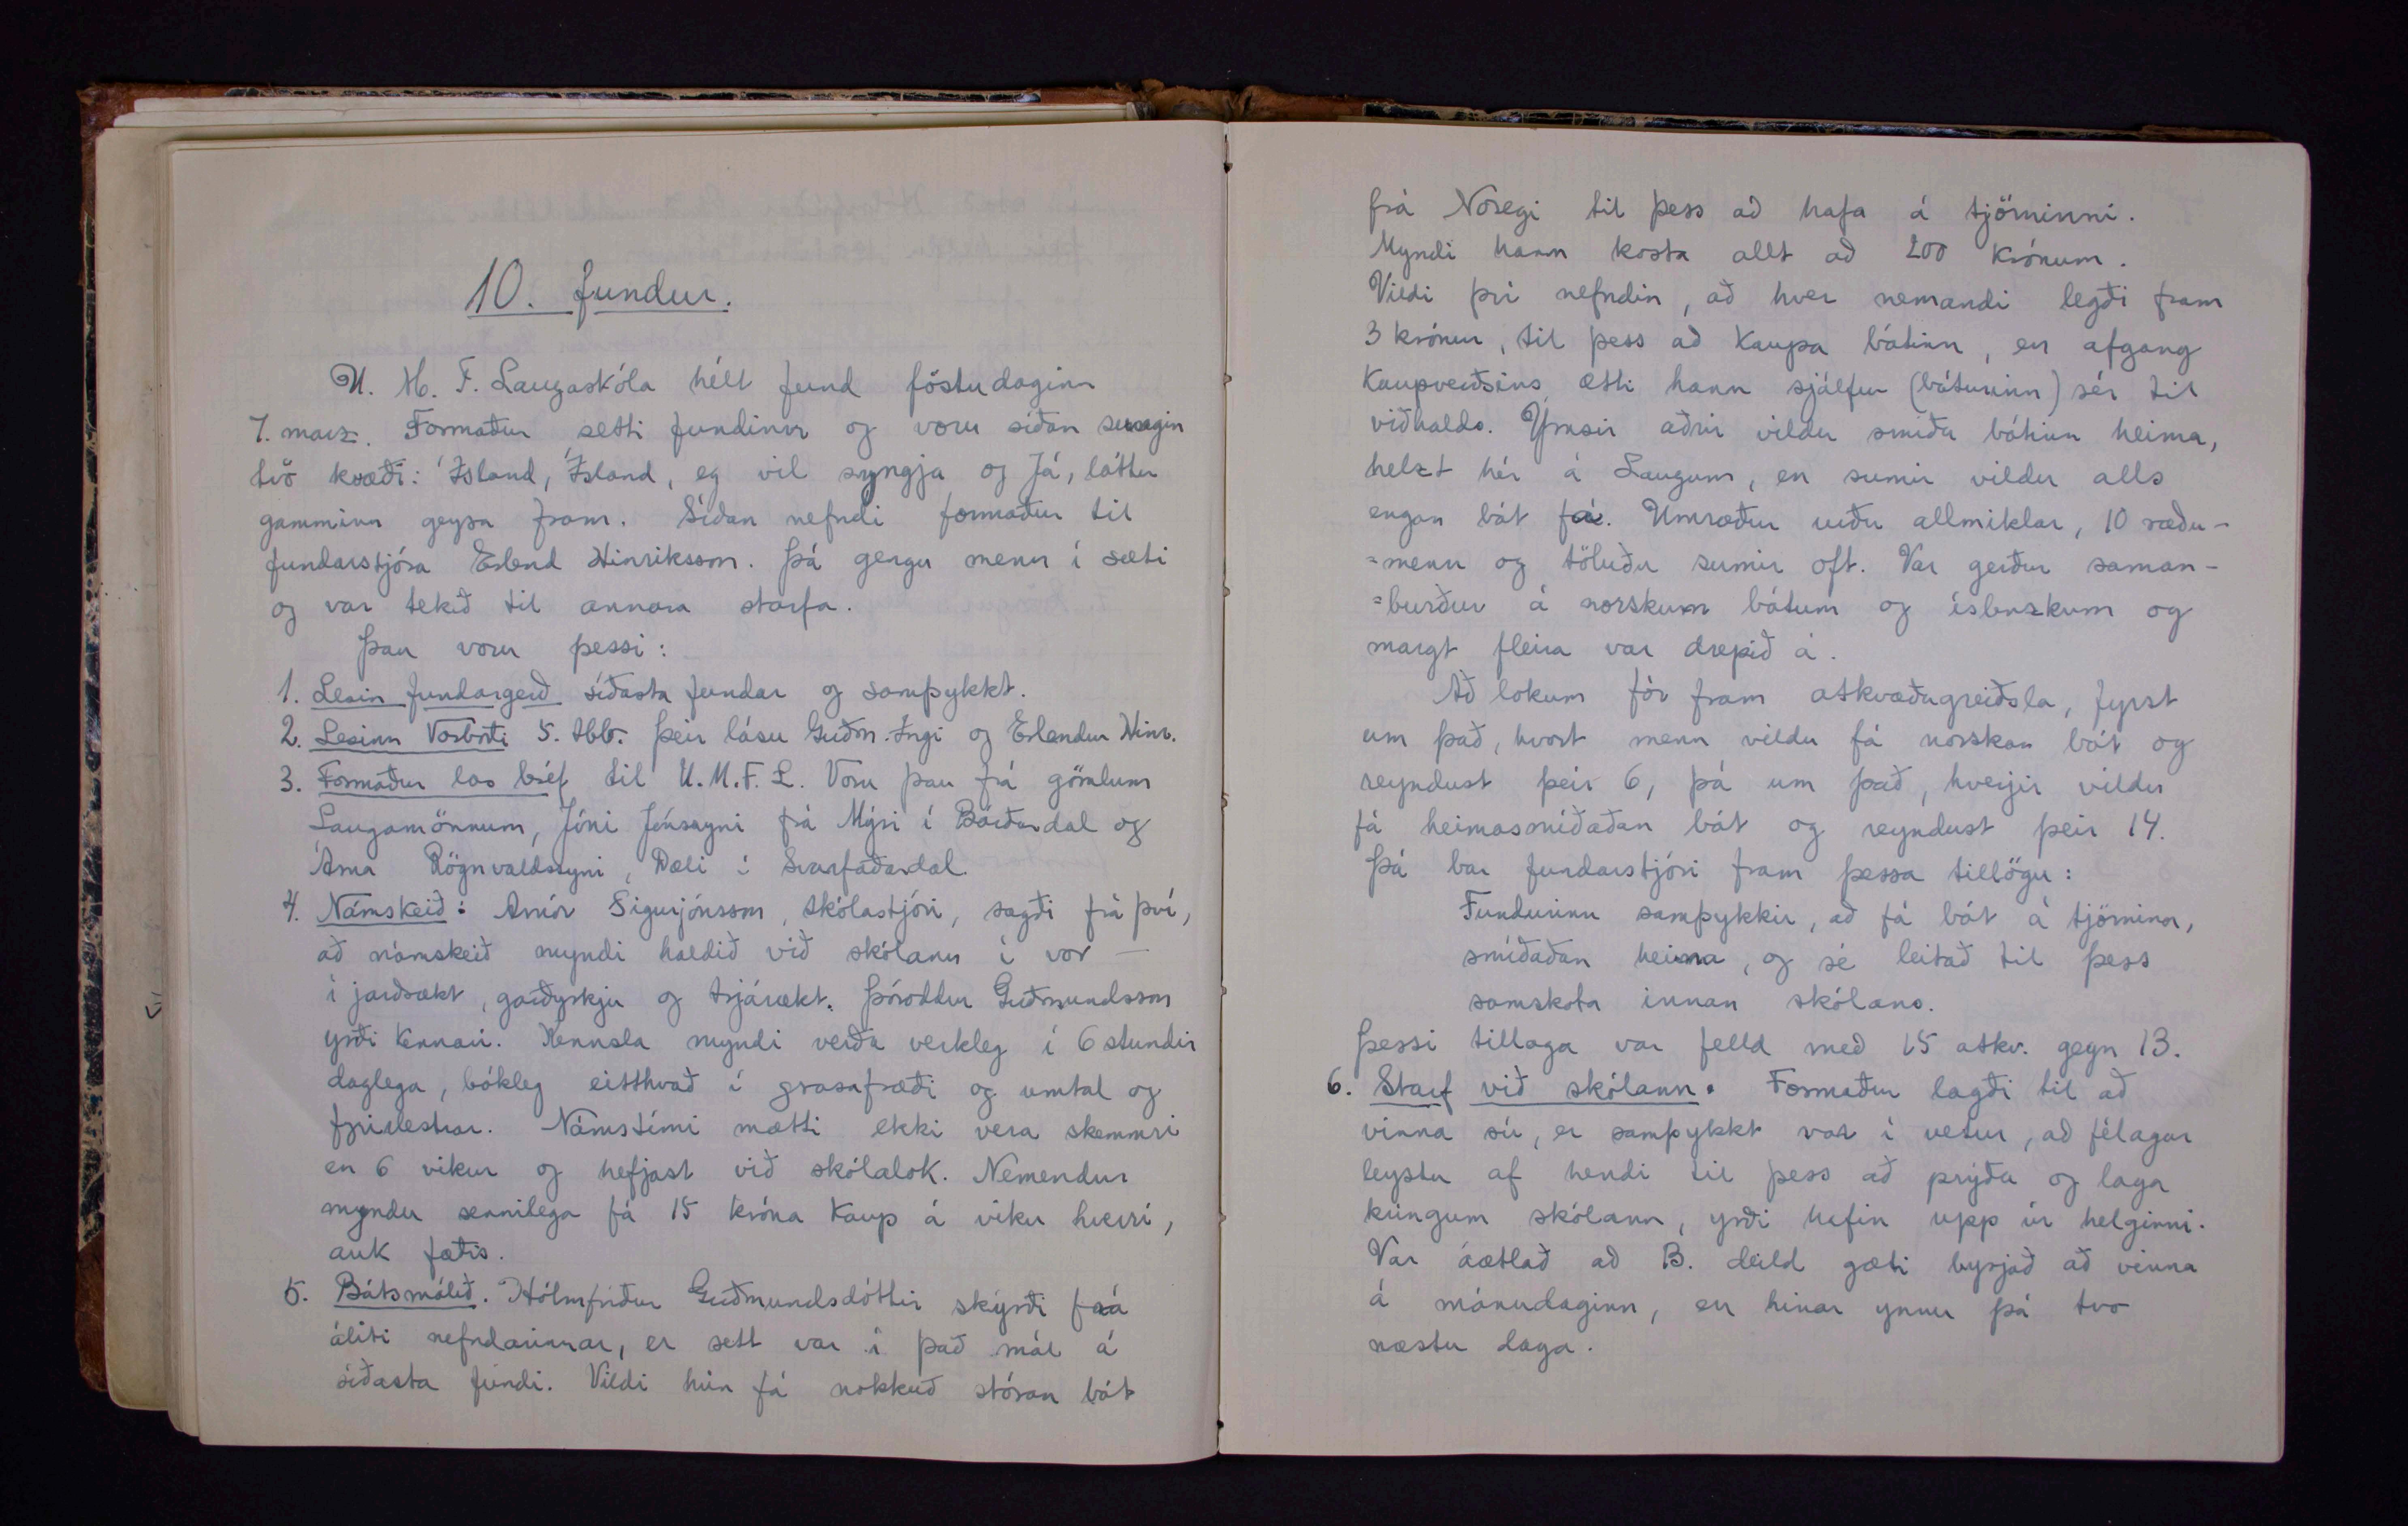 10. fundur.
U. M. F. Laugaskóla hélt fund föstudaginn
7. marz. Formaður setti fundinn og voru síðan sungin
tvö kvæði: Ísland, Ísland, eg vil syngja og Já, láttu
gamminn geysa fram. Síðan nefndi formaður til
fundarstjóra Erlend Hinriksson. Þá gengu menn í sæti
og var tekið til annara starfa.
Þau voru þessi:
1. Lesin fundargerð síðasta fundar og samþykkt.
2. Lesinn Vorboði 5. tbb. Þeir lásu Guðm. Ingi og Erlendur Hinr.
3. Formaður las bréf til U.M.F.L. Voru þau frá gömlum
Laugamönnum, Jóni Jónssyni frá Mýri í Bárðardal og
Árna Rögnvaldssyni, Dæli í Svarfaðardal.
4. Námskeið: Arnór Sigurjónsson, skólastjóri, sagði frá því,
að námskeið myndi haldið við skólann í vor —
í jarðrækt, garðyrkju og trjárækt. Þóroddur Guðmundsson
yrði kennari. Kennsla myndi verða verkleg í 6 stundir
daglega, bókleg eitthvað í grasafræði og umtal og
fyrirlestrar. Námstími mætti ekki vera skemmri
en 6 vikur og hefjast við skólalok. Nemendur
myndu sennilega fá 15 króna kaup á viku hverri,
auk fæðis.
5. Bátsmálið. Hólmfríður Guðmundsdóttir skýrði frá
áliti nefndarinnar, er sett var í það mál á
síðasta fundi. Vildi hún fá nokkuð stóran bát
frá Noregi til þess að hafa á tjörninni.
Myndi hann kosta allt að 200 krónum.
Vildi því nefndin, að hver nemandi legði fram
3 krónur, til þess að kaupa bátinn, en afgang
kaupverðsins ætti hann sjálfur (báturinn) sér til
viðhalds. Ýmsir aðrir vildu smíða bátinn heima,
helzt hér á Laugum, en sumir vildu alls
engan bát fá. Umræður urðu allmiklar, 10 ræðu-
=menn og töluðu sumir oft. Var gerður saman-
=burður á norskum bátum og íslenzkum og
margt fleira var drepið á.
Að lokum fór fram atkvæðagreiðsla, fyrst
um það, hvort menn vildu fá norskan bát og
reyndust þeir 6, þá um það, hverjir vildu
fá heimasmíðaðan bát og reyndust þeir 14.
Þá bar fundarstjóri fram þessa tillögu:
Fundurinn samþykkir, að fá bát á tjörnina,
smíðaðan heima, og sé leitað til þess
samskota innan skólans.
Þessi tillaga var felld með 15 atkv. gegn 13.
6. Starf við skólann. Formaður lagði til að
vinna sú, er samþykkt var í vetur, að félagar
leystu af hendi til þess að prýða og laga
kringum skólann, yrði hafin upp úr helginni.
Var áætlað að B. deild gæti byrjað að vinna
á mánudaginn, en hinar ynnu þá tvo
næstu daga.